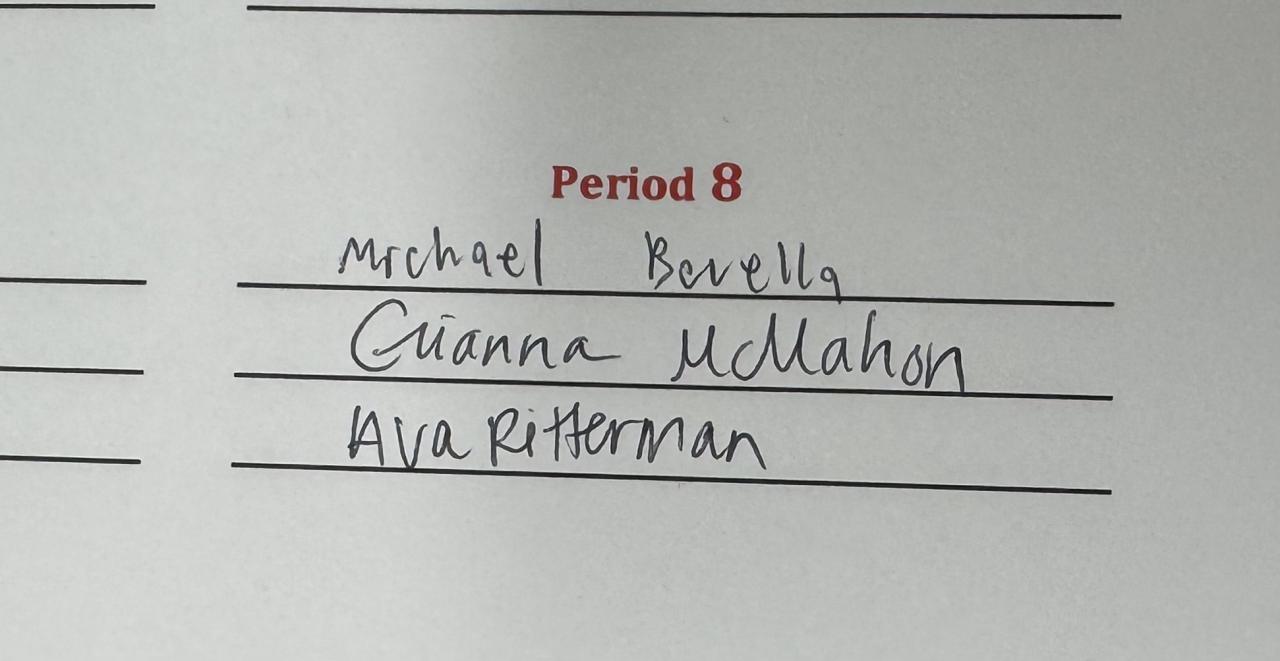 Period 8
Michael Bovella
Gianna McMahon
Ava Ritterman